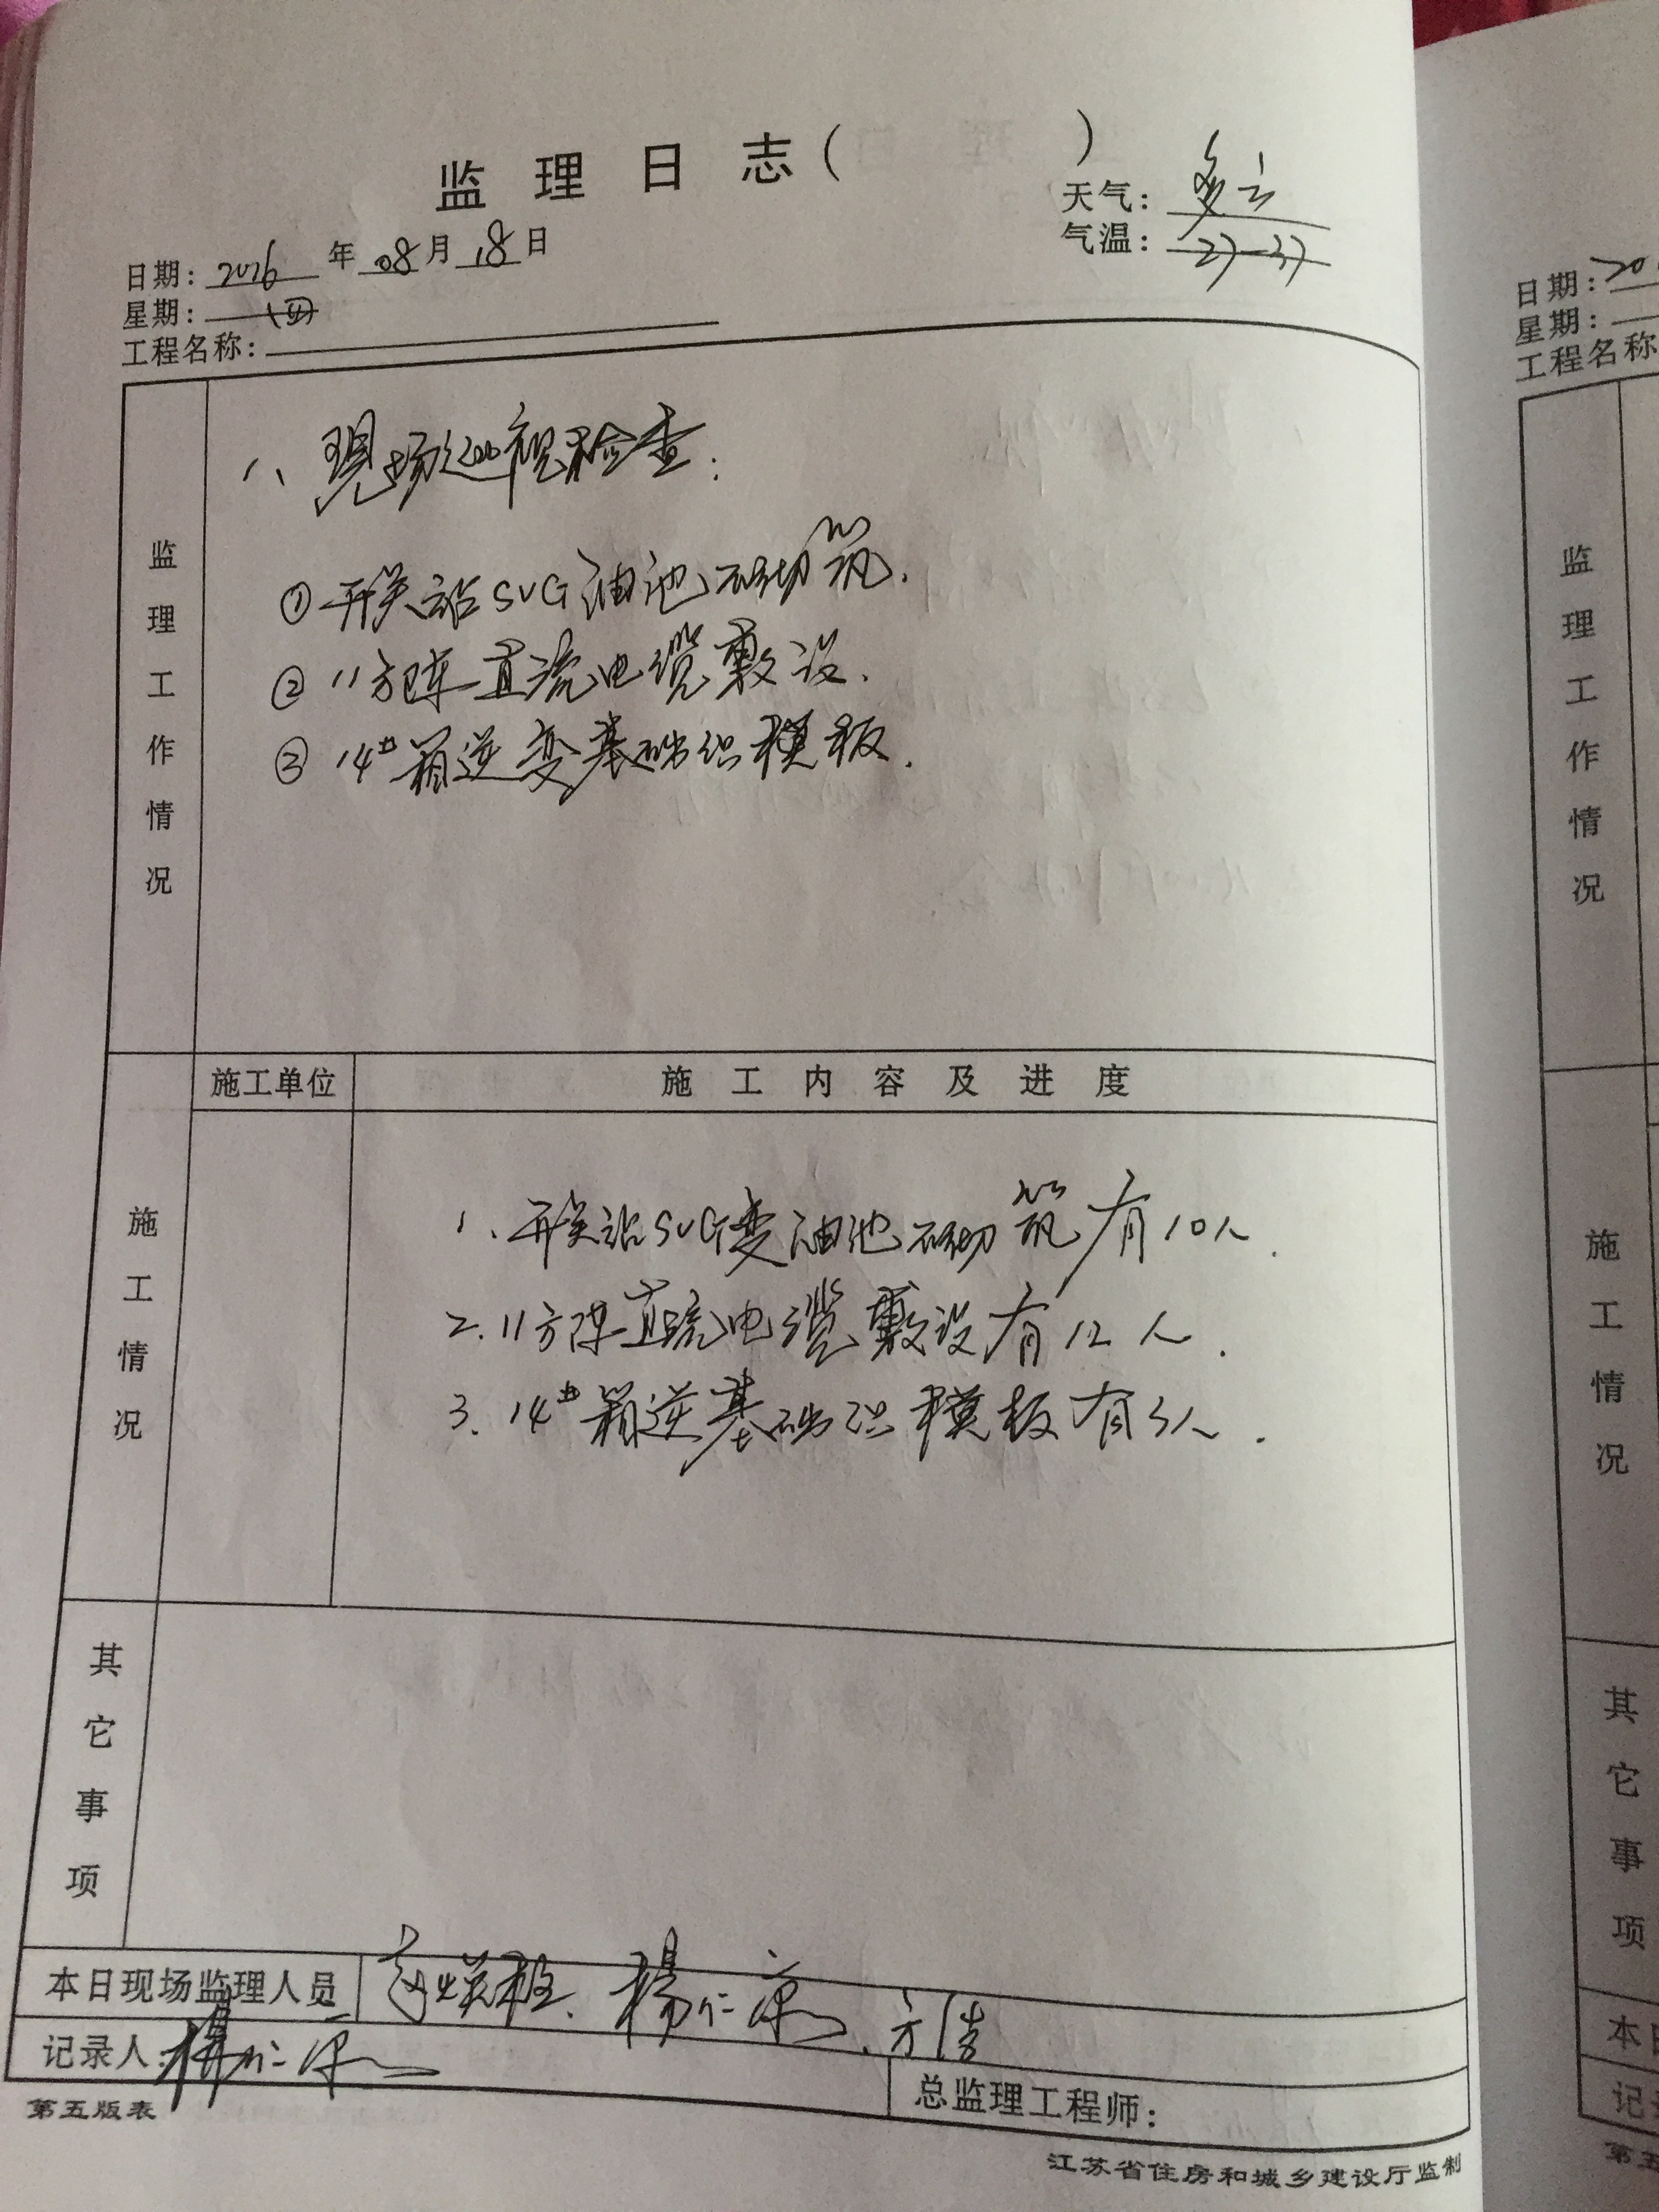 监理日志（ ）
天气：多云
气温：27-37
日期：2016年08月18日
星期：（四）
工程名称：
监理工作情况
1、現场巡视检查：
①开关站SVG油池砌筑.
②11方阵直流电缆敷设.
③14#箱逆变基础织模板.
施工单位
施工内容及进度
施工情况
1、开关站SVG变油池砌筑有10人.
2.11方阵直流电缆敷设有12人.
3.14#箱逆基础织模板有3人.
其它事项
本日现场监理人员 楊仁 、方
记录人：楊仁
总监理工程师：
第五版表
江苏省住房和城乡建设厅监制
日期：20
星期：
工程名称
监理工作情况
施工情况
其它事项
本
记
第五